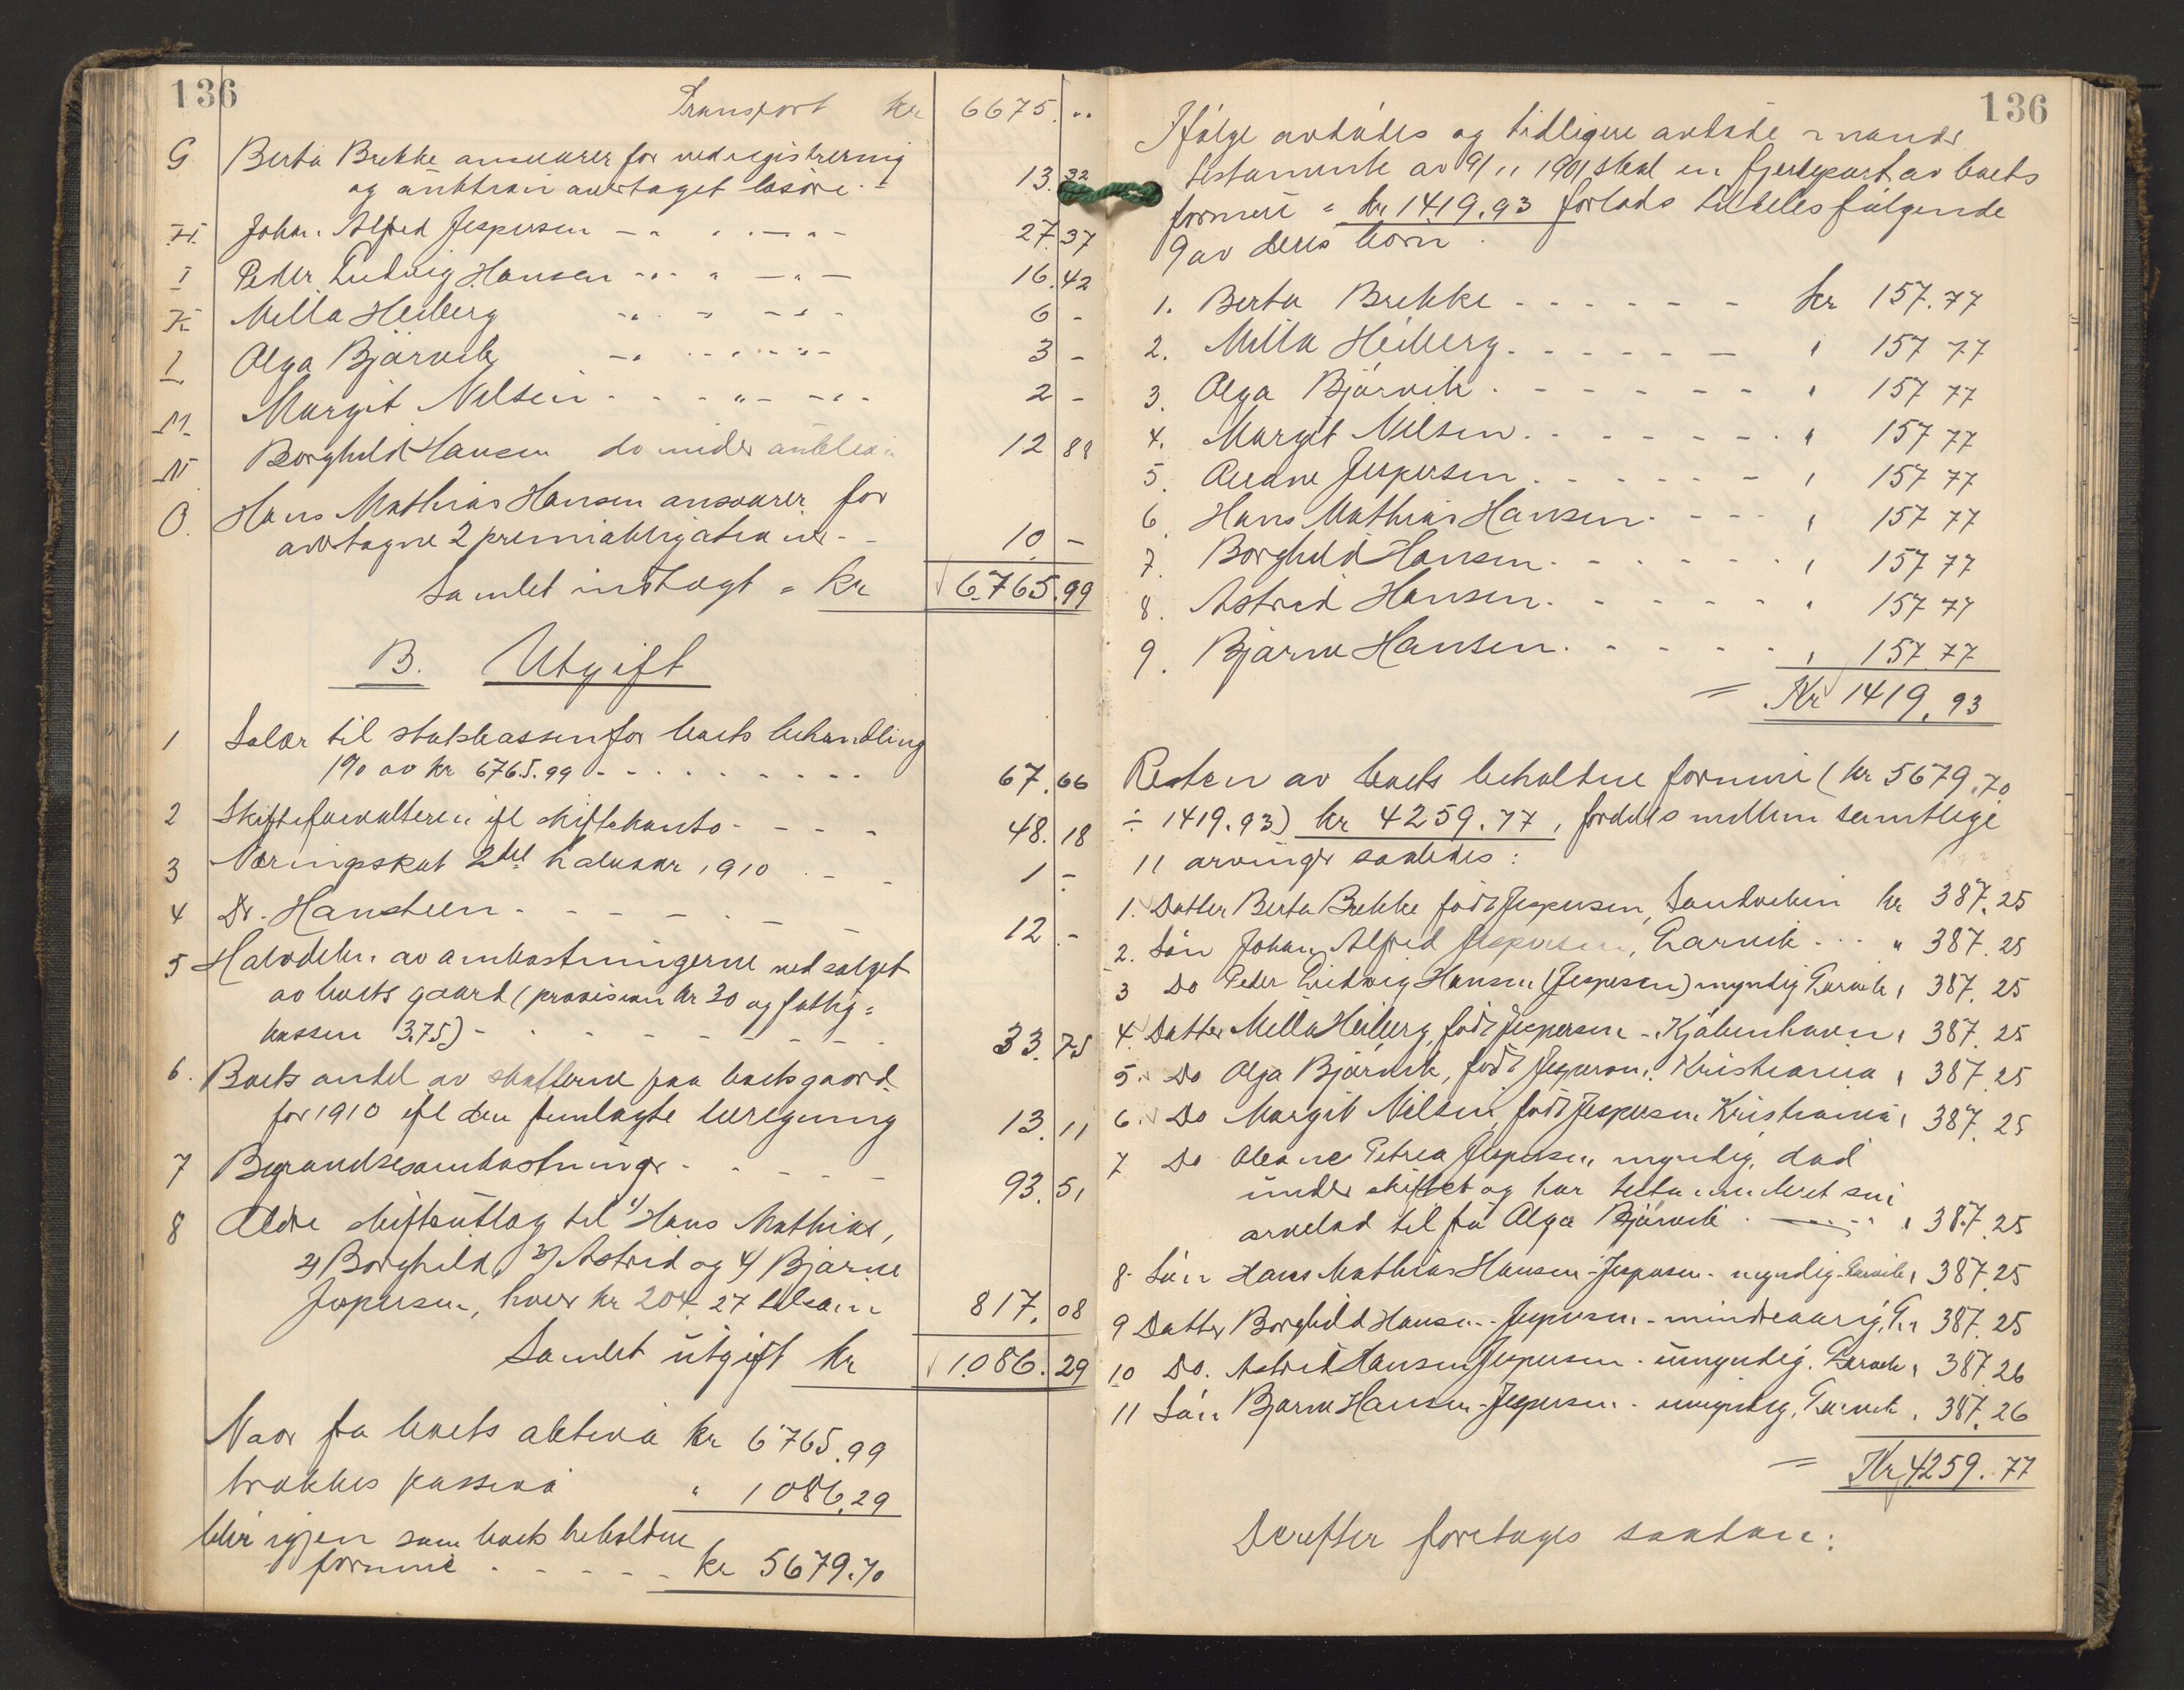 136
Transport kr 6675. "
G Berta Brekke ansvarer for ved registrering
og auktion overtaget løsøre - 13.32
H. Johan Alfred Jespersen - " - " - 27.37
I Peder Ludvig Hansen - " - " - 16.42
K Milla Heiberg - " - " - 6 -
L Olga Bjørvik - " - " - 3 -
M. Margit Nilsen - - - " - - 2 -
N Borghild Hansen do under auktion 12 88
O. Hans Mathias Hansen ansvarer for
overtagne 2 premieobligationer - - 10. -
Samlet indtægt = kr 6765.99
B. Utgift
1 Salær til statskassen for boets behandling
1% av kr 6765.99 - - - - 67.66
2 Skifteforvalteren ifl skiftekonto - - - - 48.18
3 Næringsskat 2det halvaar 1910 - - - 1 -
4 Dr. Hansteen - - - - - - 12. -
5 Halvdelen av omkostningerne ved salget
av boets gaard (provision kr 30 og fattig=
kassen 3.75) - - - - - 33.75
6. Boets andel av skatterne paa boets gaard
for 1910 ifl den fremlagte beregning 13.11
7 Begravelsesomkostninger - - - - 93.51
8 Ældre skifteutlæg til 1/ Hans Mathias,
2) Borghild, 3) Astrid og 4) Bjarne
Jespersen, hver kr 204.27 tilsam 817.08
Samlet utgift kr 1086.29
Naar fra boets aktiva kr 6765.99
trækkes passiva " 1086.29
blir igjen som boets beholdne
formue - - - - - kr 5679.70
136
Ifølge avdødes og tidligere avdøde mands
testamente av 9/11 1901 skal en fjerdepart av boets
formue = kr 1419.93 forlods tildeles følgende
9 av deres børn.
1. Berta Brekke - - - - - - kr 157.77
2. Milla Heiberg - - - - - - " 157 77
3. Olga Bjørvik - - - - - - " 157 77
4. Margit Nilsen - - - - - - " 157 77
5. Oleane Jespersen - - - - - " 157 77
6. Hans Mathias Hansen - - - - " 157 77
7. Borghild Hansen - - - - - - " 157 77
8. Astrid Hansen - - - - - - " 157 77
9. Bjarne Hansen - - - - - " 157 77
= Kr 1419.93
Resten av boets beholdne formue (kr 5679.70
÷ 1419.93) kr 4259.77, fordeles mellem samtlige
11 arvinger saaledes:
1. Datter Berta Brekke født Jespersen, Sandviken kr 387.25
2. Søn Johan Alfred Jespersen, Larvik - - - " 387.25
3 Do Peder Ludvig Hansen (Jespersen) myndig Larvik " 387.25
4. Datter Milla Heiberg, født Jespersen - Kjøbenhavn " 387.25
5. Do Olga Bjørvik, født Jespersen. Kristiania " 387.25
6. Do Margit Nilsen, født Jespersen Kristiania " 387.25
7 Do Oleane Petrea Jespersen, myndig, død
under skiftet og har testamenteret sin
arvelod til fru Olga Bjørvik - - - " 387.25
8. Søn Hans Mathias Hansen-Jespersen - myndig - Larvik " 387.25
9 Datter Borghild Hansen-Jespersen - mindreaarig, L. " 387.25
10 Do. Astrid Hansen Jespersen - umyndig. Larvik " 387.26
11 Søn Bjarne Hansen-Jespersen - umyndig, Larvik " 387.26
= Kr 4259.77
Derefter foretages saadan: